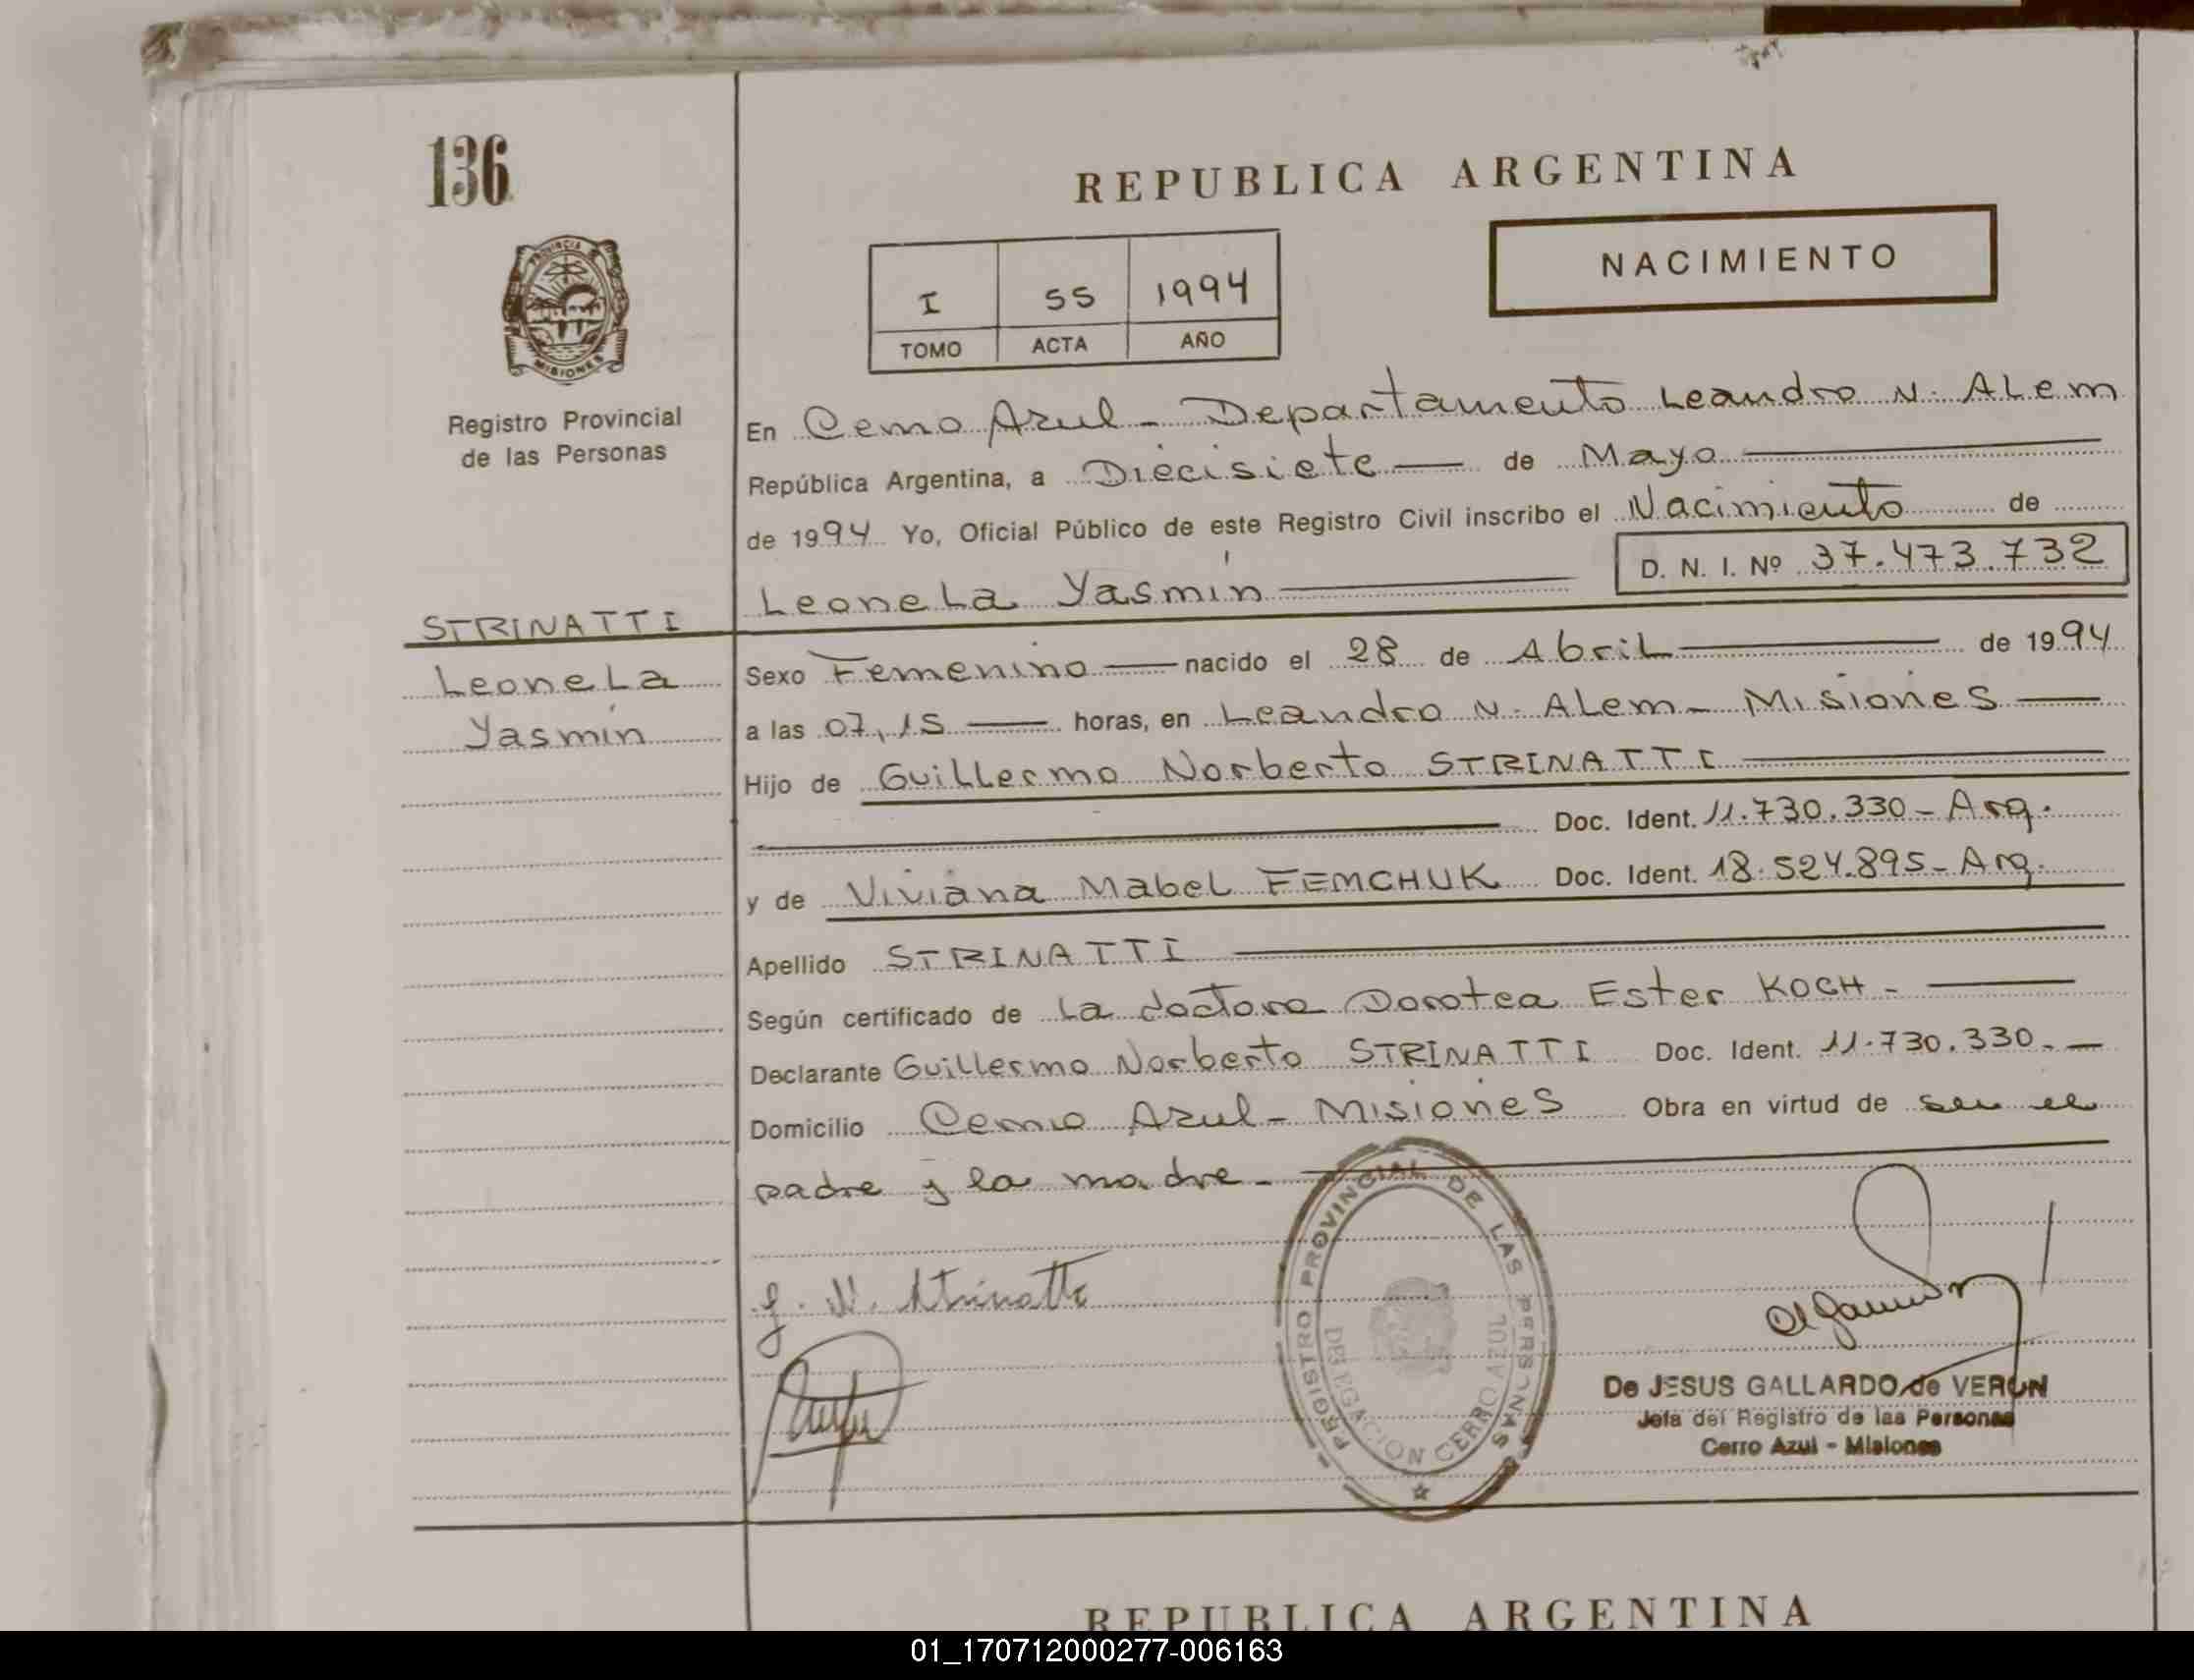 136
REPUBLICA ARGENTINA
NACIMIENTO
PROVINCIA
MISIONES
I 55 1994
TOMO ACTA AÑO
Registro Provincial
de las Personas
En Cerro Azul - Departamento Leandro N. ALem
República Argentina, a Diecisiete de Mayo
de 1994 Yo, Oficial Público de este Registro Civil inscribo el Nacimiento de
LeoneLa Yasmín D. N. I. Nº 37.473.732
STRINATTI
LeoneLa
Yasmín
Sexo Femenino nacido el 28 de AbriL de 1994
a las 07,15 horas, en Leandro N. ALem - Misiones
Hijo de GuiLLermo Norberto STRINATTI
Doc. Ident. 11.730.330 - Arg.
y de Viviana MabeL FEMCHUK Doc. Ident. 18.524.895 - Arg.
Apellido STRINATTI
Según certificado de La doctora Dorotea Ester KOCH -
Declarante GuiLLermo Norberto STRINATTI Doc. Ident. 11.730.330.-
Domicilio Cerro Azul - Misiones Obra en virtud de ser el
padre y la madre.-
G. N. Strinatti
REGISTRO PROVINCIAL DE LAS PERSONAS
DELEGACION CERRO AZUL
De JESUS GALLARDO de VERON
Jefa del Registro de las Personas
Cerro Azul - Misiones
REPUBLICA ARGENTINA
01_170712000277-006163